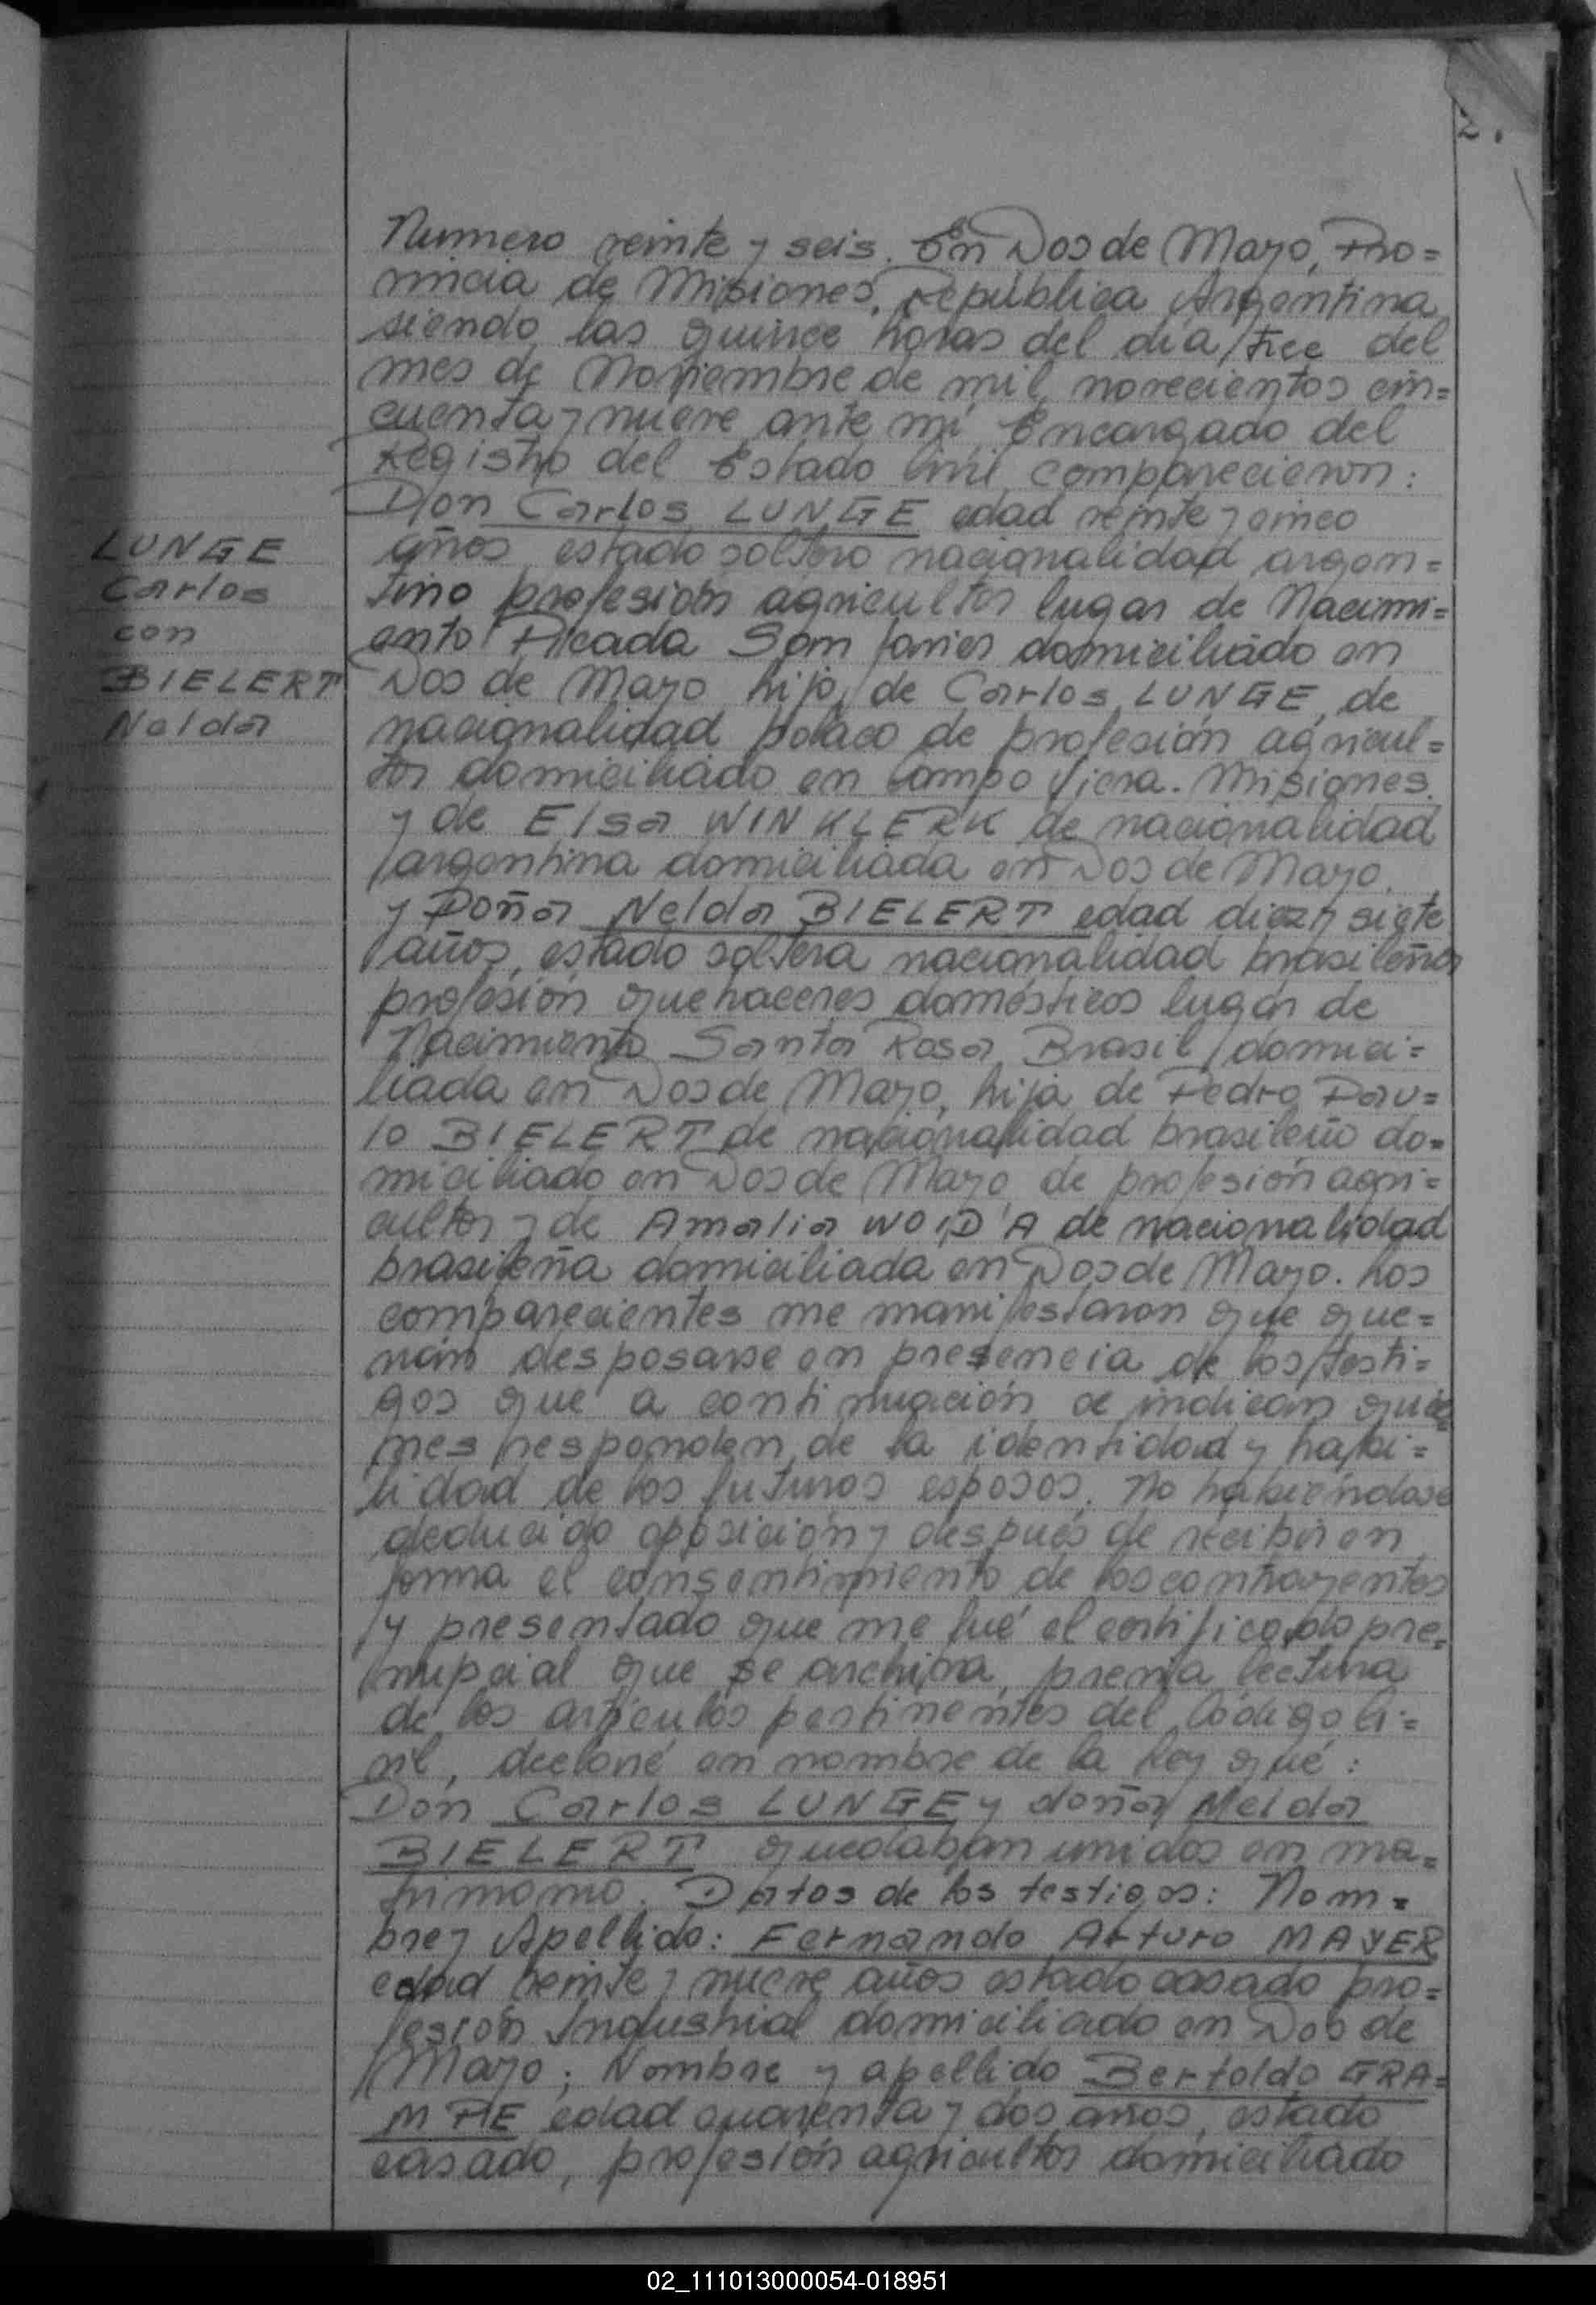 2.
Numero veinte y seis. En Dos de Mayo, Pro=
vincia de Misiones, Republica Argentina
siendo las quince horas del día trece del
mes de Noviembre de mil novecientos cin=
cuenta y nueve ante mi Encargado del
Registro del Estado Civil comparecieron:
Don Carlos LUNGE edad veinte y cinco
años, estado soltero nacionalidad argen=
tino profesión agricultor lugar de Nacimi=
ento Picada San Javier domiciliado en
Dos de Mayo hijo de Carlos LUNGE, de
nacionalidad polaco de profesión agricul=
tor domiciliado en Campo Viera. Misiones.
y de Elsa WINKLERK de nacionalidad
argentina domiciliada en Dos de Mayo.
y Doña Nelda BIELERT edad diez y siete
años, estado soltera nacionalidad brasileña
profesión quehaceres domésticos lugar de
Nacimiento Santa Rosa Brasil domici=
liada en Dos de Mayo, hija de Pedro Pau=
lo BIELERT de nacionalidad brasileño do=
miciliado en Dos de Mayo de profesión agri=
cultor y de Amalia WOID'A de nacionalidad
brasileña domiciliada en Dos de Mayo. Los
comparecientes me manifestaron que que=
rían desposarse en presencia de los testi=
gos que a continuación se indican quie=
nes responden de la identidad y habi=
lidad de los futuros esposos. No habiéndose
deducido oposición y después de recibir en
forma el consentimiento de los contrayentes
y presentado que me fué el certificado pre=
nupcial que se archiva, previa lectura
de los artículos pertinentes del Código Ci=
vil, declaré en nombre de la Ley que:
Don Carlos LUNGE y doña Nelda
BIELERT quedaban unidos en ma=
trimonio. Datos de los testigos: Nom=
bre y Apellido: Fernando Arturo MAYER
edad veinte y nueve años estado casado pro=
fesión Industrial domiciliado en Dos de
Mayo; Nombre y apellido Bertoldo GRA=
MPE edad cuarenta y dos años, estado
casado, profesión agricultor domiciliado
LUNGE
Carlos
con
BIELERT
Nelda
02_111013000054-018951